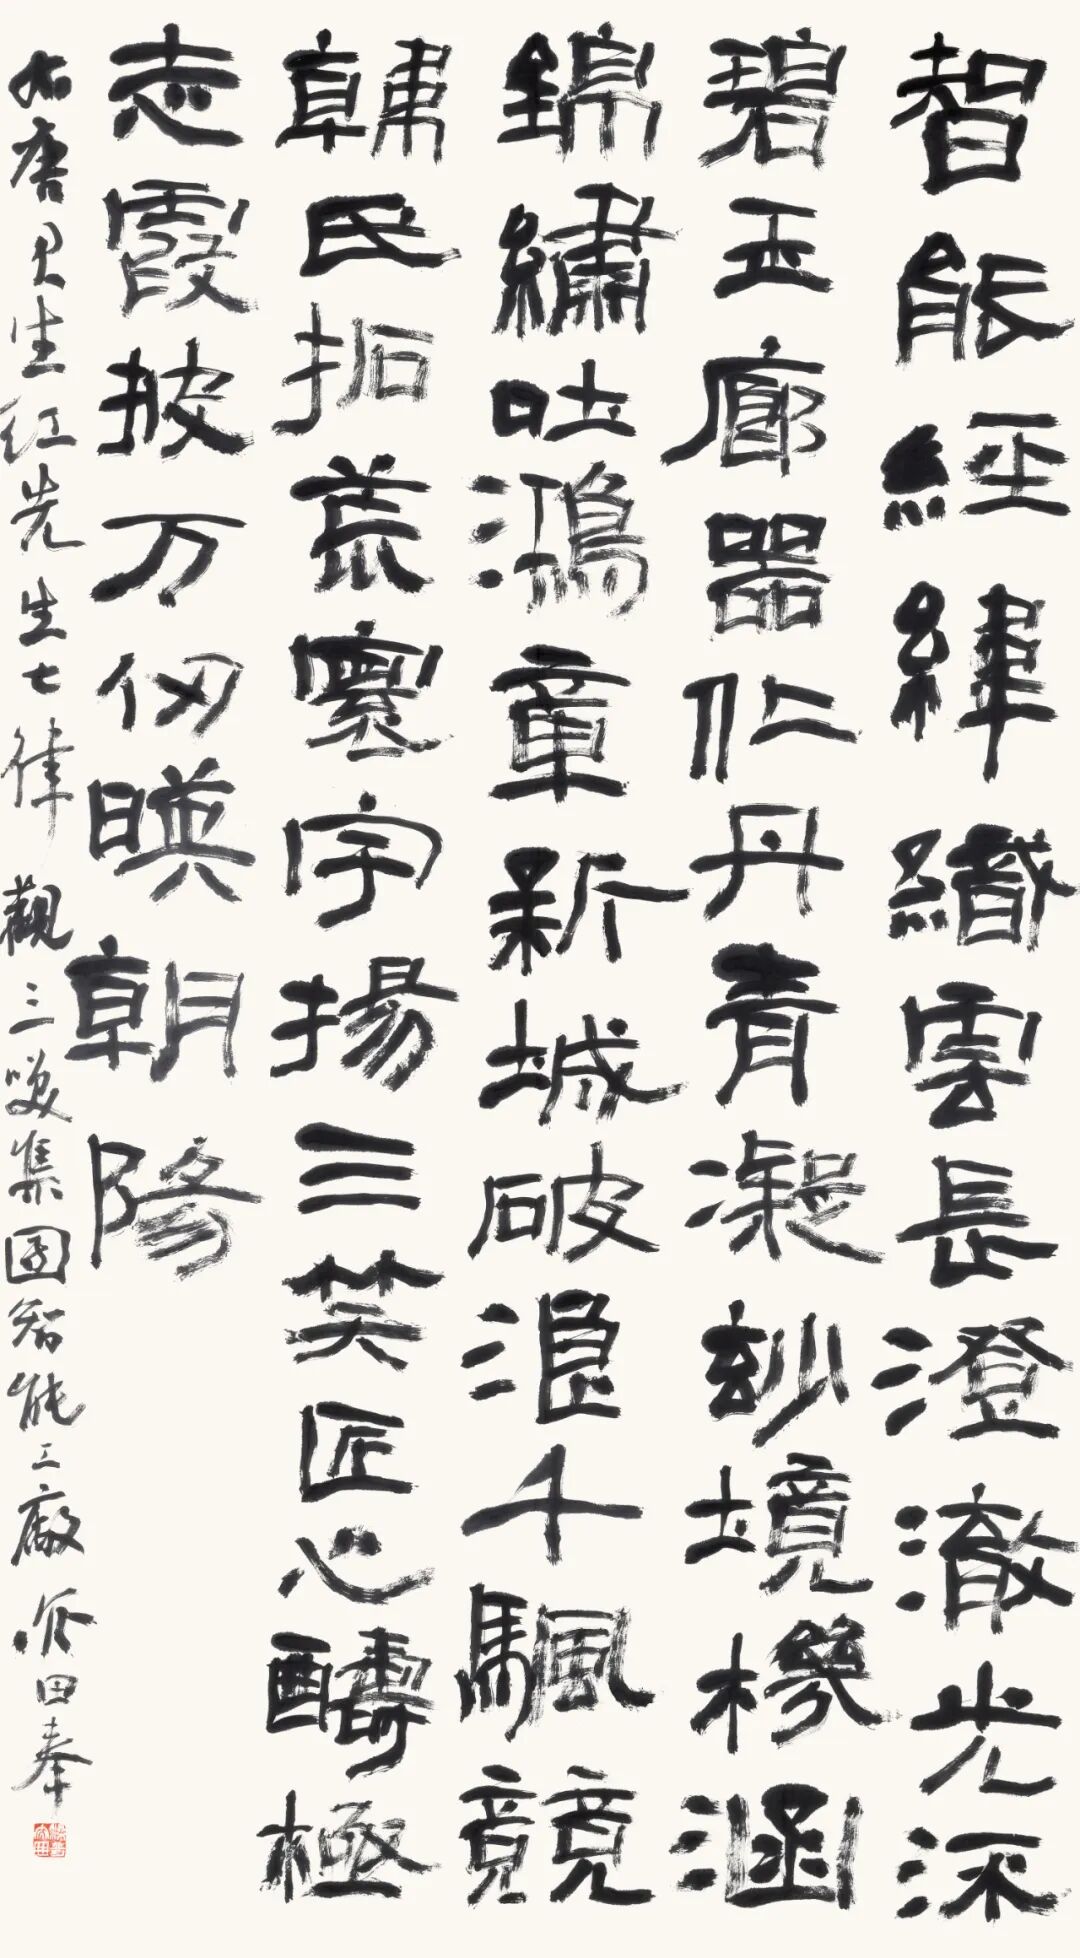 智能經緯織雲長澄澈光深
碧玉廊器仁丹青凝玅境機涵
錦繡吐鴻章新城破浪千颿競
韓民拓荒寰宇揚三笑匠心醻極
志霞披万仞暎朝陽
右唐生红先生七律觀三笑集團智能工廠田奉